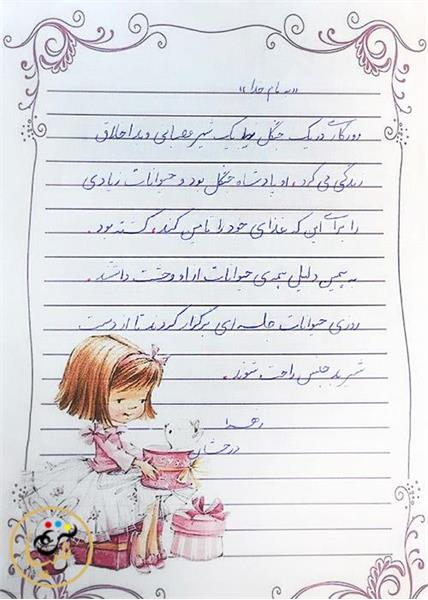 «به نام خدا»
روزگاری در یک جنگل یک شیر عصبانی و بد اخلاق
زندگی می کرد. او پادشاه جنگل بود و حیوانات زیادی
را برای این که غذای خود را تامین کند، کشته بود.
به همین دلیل همه‌ی حیوانات از او وحشت داشتند.
روزی حیوانات جلسه ای برگزار کردند تا از دست
شیر بد جنس راحت شوند.
زهرا
درخشان